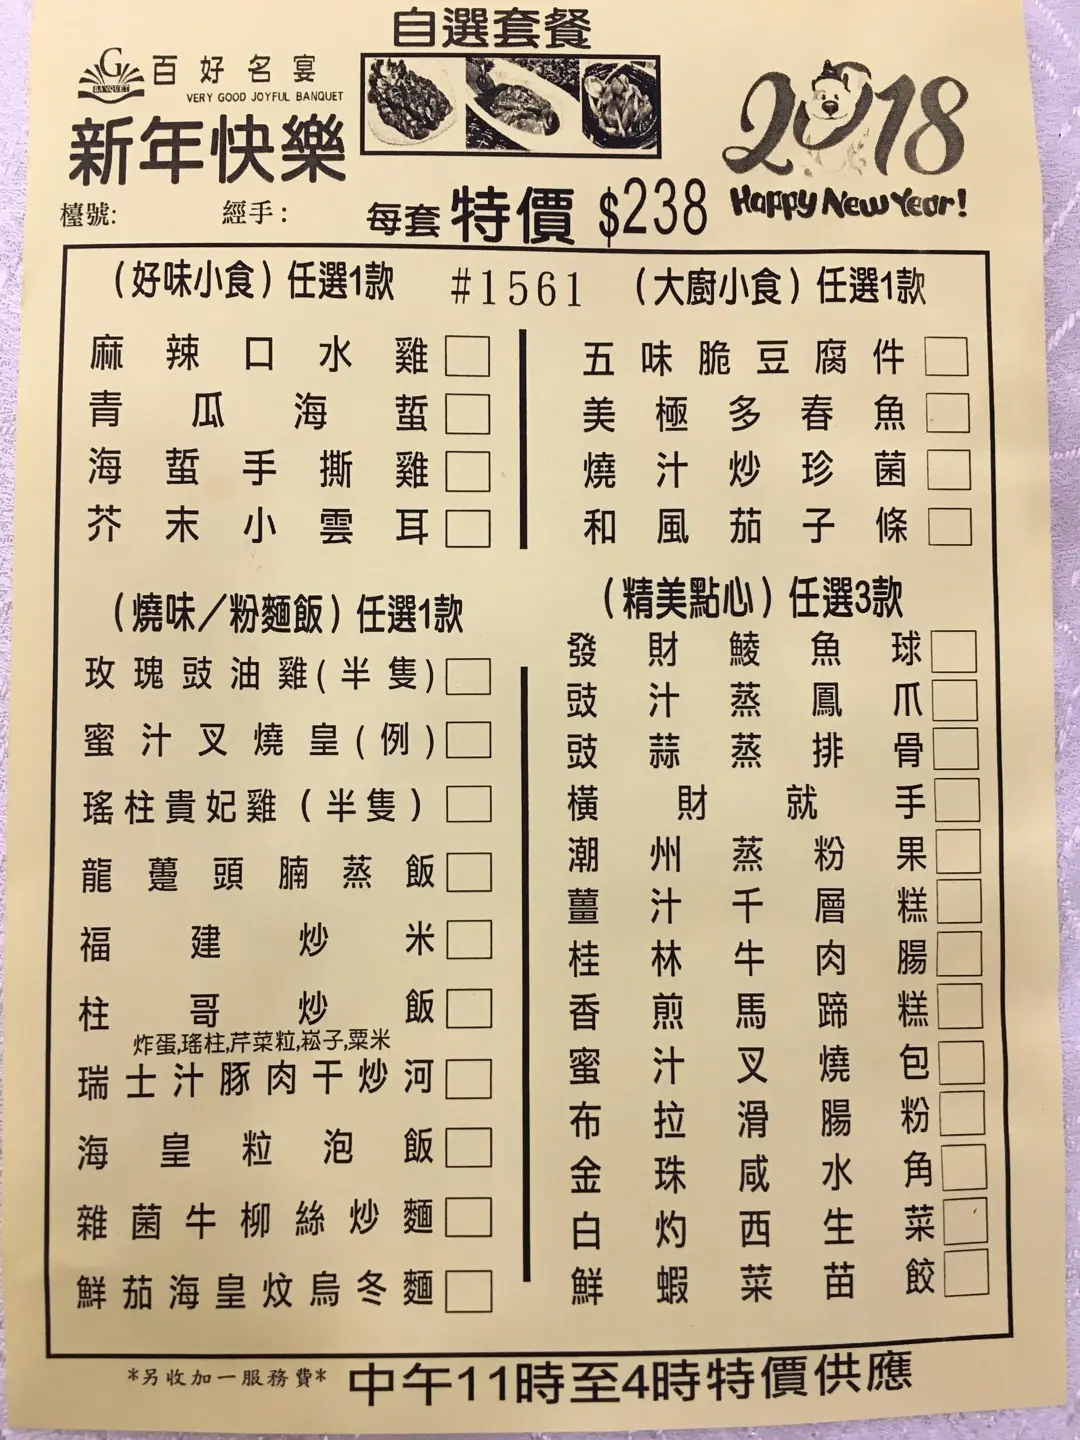 自選套餐
G
BANQUET
百好名宴
VERY GOOD JOYFUL BANQUET
新年快樂
2018
Happy New Year!
檯號: 經手:
每套特價 $238
#1561
(好味小食) 任選1款
麻辣口水雞
青瓜海蜇
海蜇手撕雞
芥末小雲耳
(大廚小食) 任選1款
五味脆豆腐件
美極多春魚
燒汁炒珍菌
和風茄子條
(燒味/粉麵飯) 任選1款
玫瑰豉油雞(半隻)
蜜汁叉燒皇(例)
瑤柱貴妃雞(半隻)
龍躉頭腩蒸飯
福建炒米
柱哥炒飯
炸蛋,瑤柱,芹菜粒,崧子,粟米
瑞士汁豚肉干炒河
海皇粒泡飯
雜菌牛柳絲炒麵
鮮茄海皇炆烏冬麵
(精美點心) 任選3款
發財鯪魚球
豉汁蒸鳳爪
豉蒜蒸排骨
橫財就手
潮州蒸粉果
薑汁千層糕
桂林牛肉腸
香煎馬蹄糕
蜜汁叉燒包
布拉滑腸粉
金珠咸水角
白灼西生菜
鮮蝦菜苗餃
*另收加一服務費*
中午11時至4時特價供應